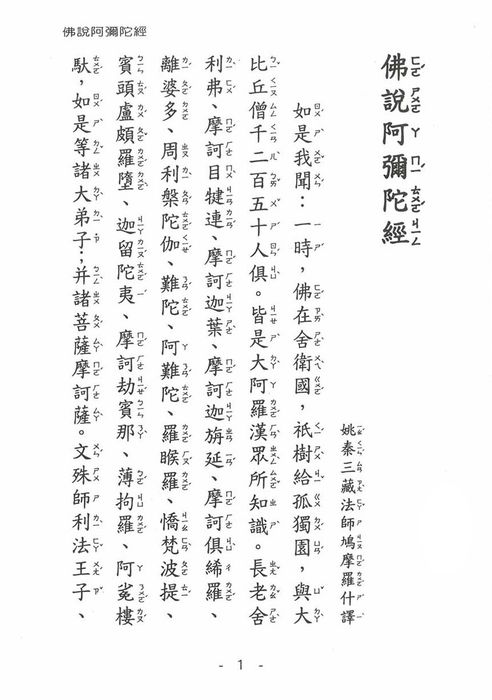 佛說阿彌陀經
佛說阿彌陀經
姚秦三藏法師鳩摩羅什譯
如是我聞：一時，佛在舍衛國，祇樹給孤獨園，與大
比丘僧千二百五十人俱。皆是大阿羅漢眾所知識。長老舍
利弗、摩訶目犍連、摩訶迦葉、摩訶迦旃延、摩訶俱絺羅、
離婆多、周利槃陀伽、難陀、阿難陀、羅睺羅、憍梵波提、
賓頭盧頗羅墮、迦留陀夷、摩訶劫賓那、薄拘羅、阿㝹樓
馱，如是等諸大弟子；并諸菩薩摩訶薩。文殊師利法王子、
- 1 -